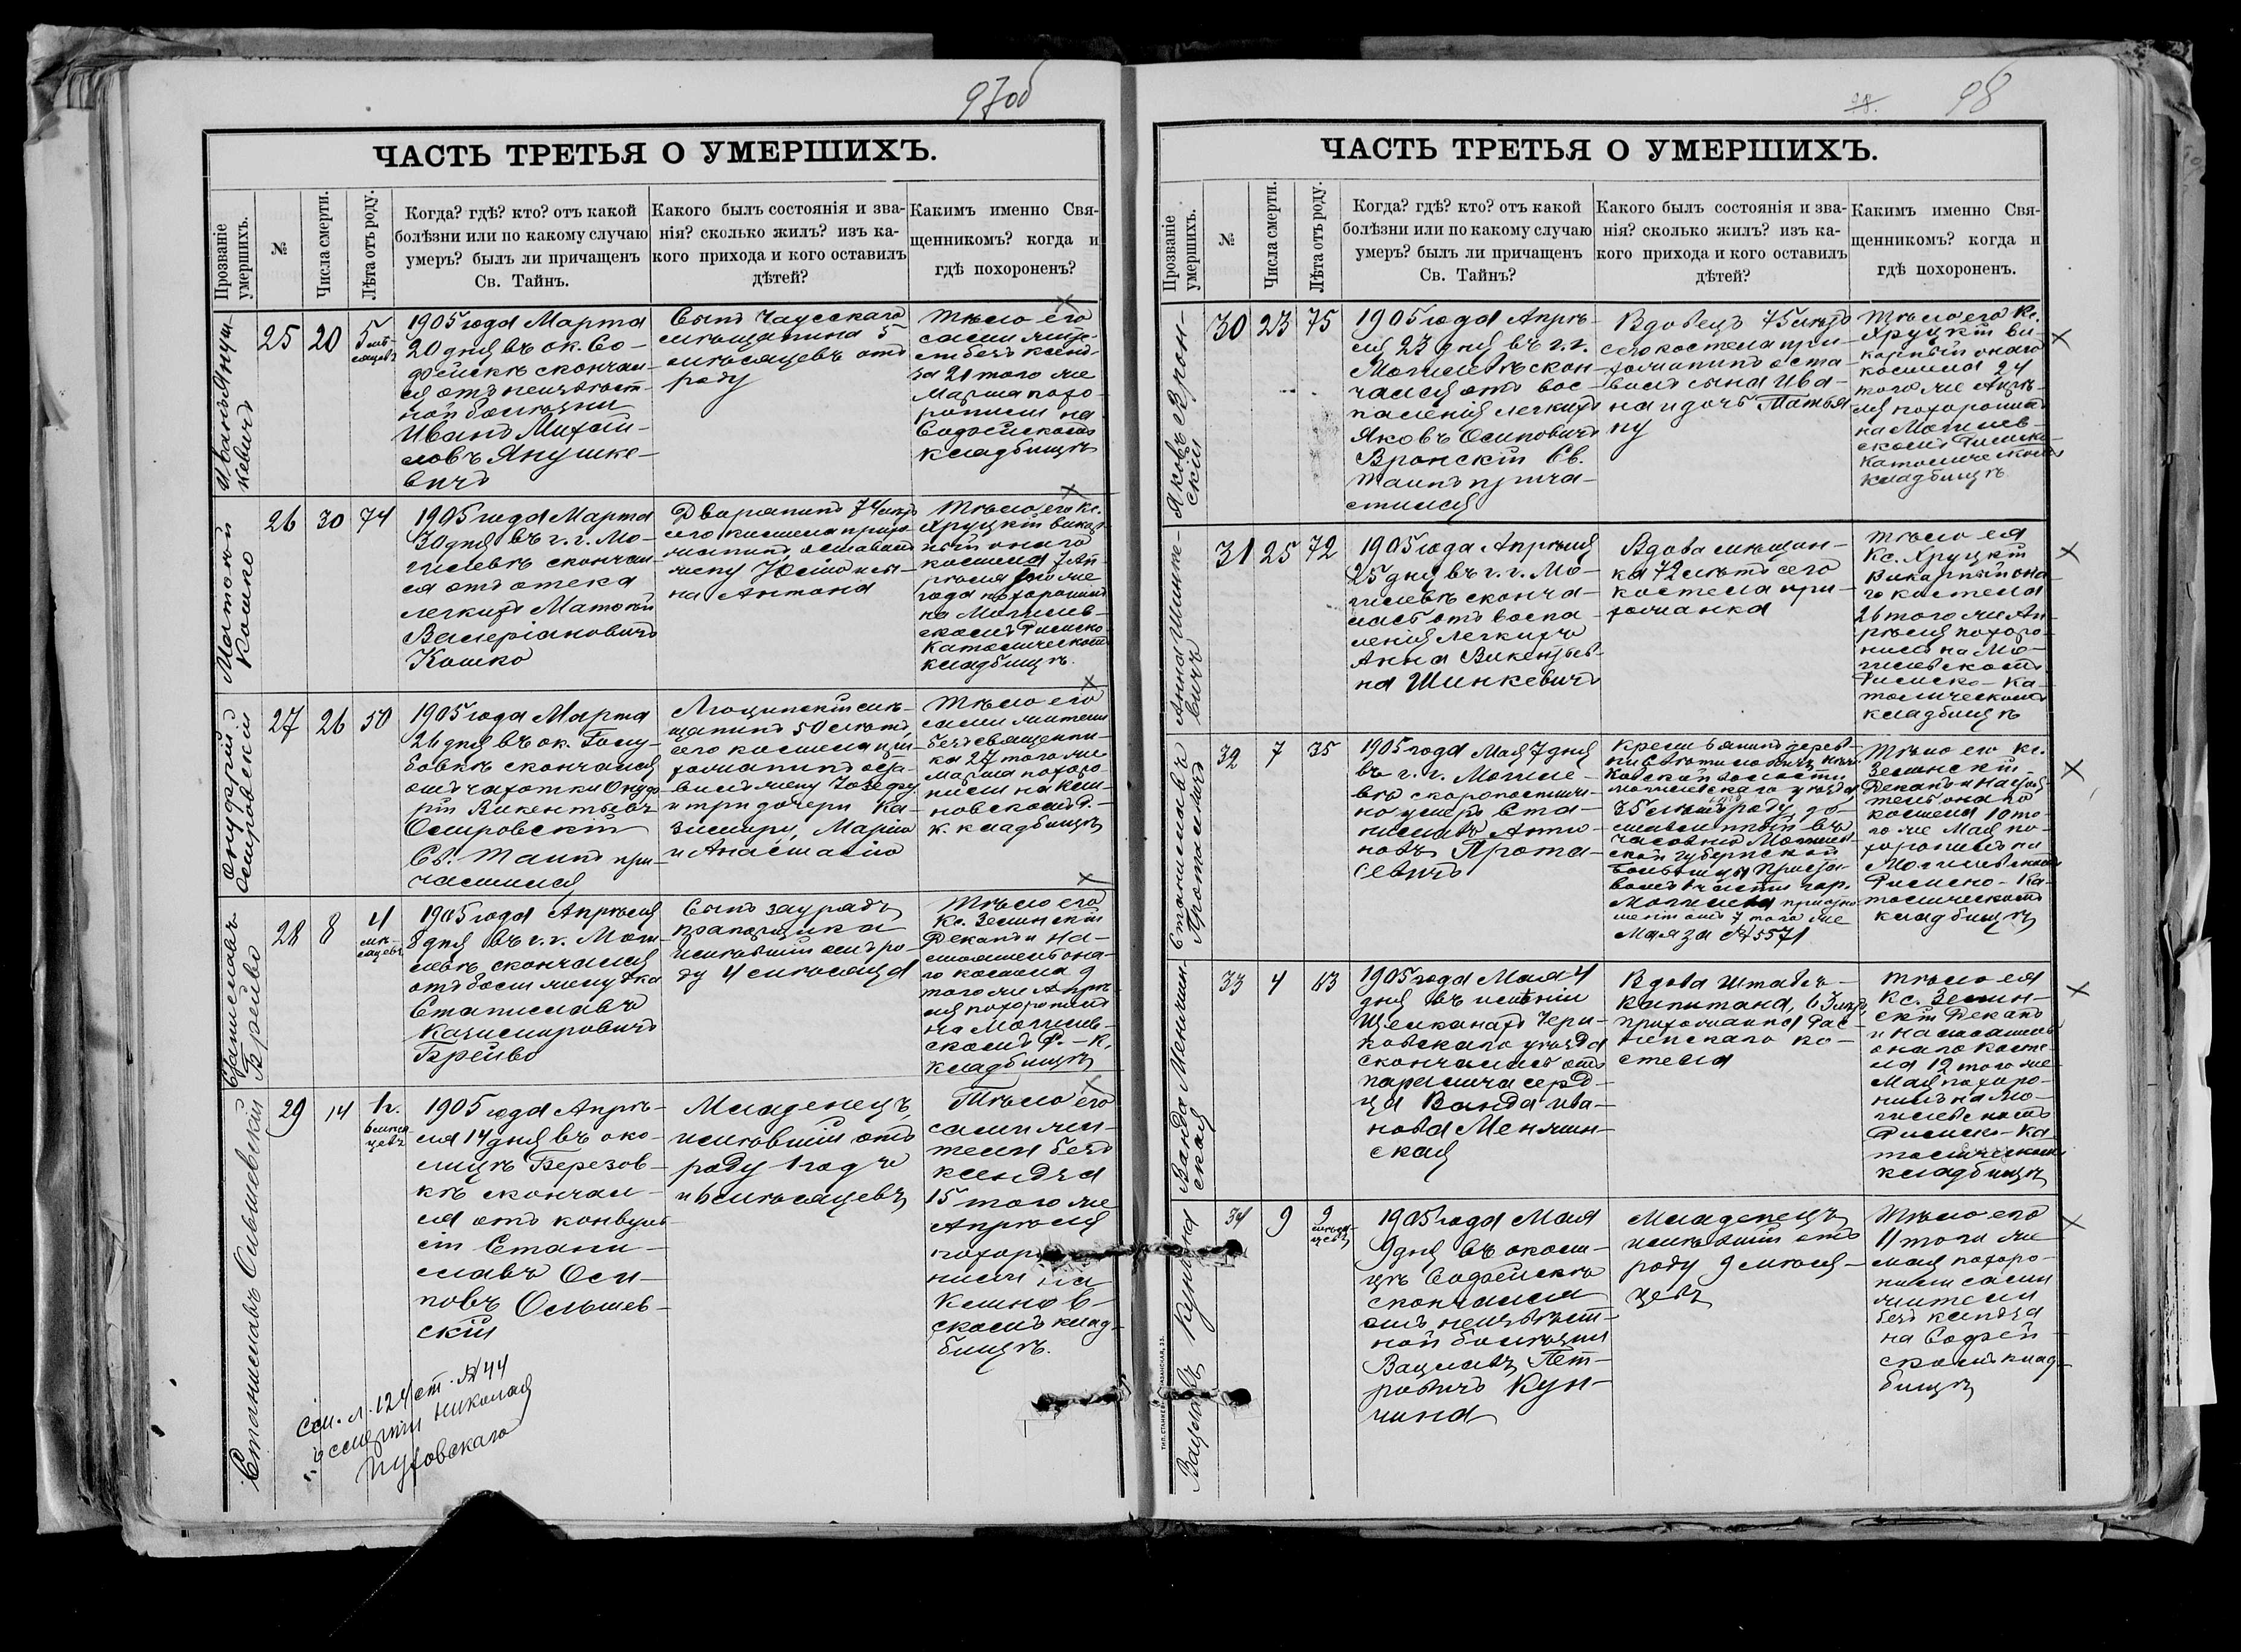 97об
ЧАСТЬ ТРЕТЬЯ О УМЕРШИХЪ.
Прозваніе умершихъ.
№
Числа смерти.
Лѣта отъ роду.
Когда? гдѣ? кто? отъ какой
болѣзни или по какому случаю
умеръ? былъ ли причащенъ
Св. Тайнъ.
Какого былъ состоянія и зва-
нія? сколько жилъ? изъ ка-
кого прихода и кого оставилъ
дѣтей?
Какимъ именно Свя-
щенникомъ? когда и
гдѣ похороненъ?
Иванъ Януш-
кевичъ
25
20
5 мѣ-
сяцевъ
1905 года Марта
20 дня въ ок. Со-
фейскѣ скончал-
ся отъ неизвѣст-
ной болѣзни
Иванъ Михай-
ловъ Янушке-
вичъ
Сынъ Чаусскаго
мѣщанина 5
мѣсяцевъ отъ
роду
Тѣло его
сами жите-
ли безъ ксенд-
за 21 того же
Марта похо-
ронили на
Софейскомъ
кладбищѣ
Матвѣй
Кошко
26
30
74
1905 года Марта
30 дня въ г. г. Мо-
гилевѣ скончал-
ся отъ отека
легкихъ Матвѣй
Валеріановичъ
Кошко
Дворянинъ 74 лѣтъ
сего костела прихо-
жанинъ оставилъ
жену Юлію и сы-
на Антона
Тѣло его Кс.
Хруцкій викар-
ный онаго
костела 1 Ап-
рѣля того же
года похоронилъ
на Могилев-
скомъ Римско-
Католическомъ
кладбищѣ.
Онуфрій
Островскій
27
26
50
1905 года Марта
26 дня въ ок. Голу-
бовкѣ скончался
отъ чахотки Онуф-
рій Викентьевъ
Островскій
Св. Таинъ при-
частился
мѣ-
щанинъ 50 лѣтъ,
сего костела при-
хожанинъ оста-
вилъ жену Юзефу
и три дочери Ка-
зимиру, Марію
и Анастасію
Тѣло его
сами жители
безъ священни-
ка 27 того же
Марта похоро-
нили на Клим-
новскомъ Р.-
К. кладбищѣ
Станиславъ
Брейво
28
8
4
мѣ-
сяцевъ
1905 года Апрѣля
8 дня въ г. г. Моги-
левѣ скончался
отъ боли желудка
Станиславъ
Казимировичъ
Брейво
Сынъ заурядъ
прапорщика
имѣвшій отъ ро-
ду 4 мѣсяца
Тѣло его
Кс. Зелинскій
Деканъ и на-
стоятель она-
го костела 9
того же Апрѣ-
ля похоронилъ
на Могилев-
скомъ Р.-К.
кладбищѣ
Станиславъ Ольшевскій
29
14
1 г.
6 мѣся-
цевъ
1905 года Апрѣ-
ля 14 дня въ око-
лицѣ Березов-
кѣ скончал-
ся отъ конвуль-
сіи Стани-
славъ Оси-
повъ Ольшев-
скій
Младенецъ,
имѣвшій отъ
роду 1 годъ
и 6 мѣсяцевъ
Тѣло его
сами жи-
тели безъ
ксендза
15 того же
Апрѣля
похоро-
нили на
Климов-
скомъ клад-
бищѣ.
См. л. 124 ст. №44
о смерти Николая
Пуховскаго
98.
98
ЧАСТЬ ТРЕТЬЯ О УМЕРШИХЪ.
Прозваніе умершихъ.
№
Числа смерти.
Лѣта отъ роду.
Когда? гдѣ? кто? отъ какой
болѣзни или по какому случаю
умеръ? былъ ли причащенъ
Св. Тайнъ?
Какого былъ состоянія и зва-
нія? сколько жилъ? изъ ка-
кого прихода и кого оставилъ
дѣтей?
Какимъ именно Свя-
щенникомъ? когда и
гдѣ похороненъ.
Яковъ Врон-
скій
30
23
75
1905 года Апрѣ-
ля 23 дня въ г. г.
Могилевѣ скон-
чался отъ вос-
паленія легкихъ
Яковъ Осиповичъ
Вронскій Св.
Таинъ прича-
стился
Вдовецъ 75 лѣтъ
сего костела при-
хожанинъ оста-
вилъ сына Ива-
на и дочь Татья-
ну
Тѣло его Кс.
Хруцкій ви-
карный онаго
костела 24
того же Апрѣ-
ля похоронилъ
на Могилев-
скомъ Римско-
Католическомъ
кладбищѣ
Анна Шинке-
вичъ
31
25
72
1905 года Апрѣля
25 дня въ г. г. Мо-
гилевѣ сконча-
лась отъ воспа-
ленія легкихъ
Анна Викентьев-
на Шинкевичъ
Вдова мѣщан-
ка 72 лѣтъ сего
костела при-
хожанка
Тѣло ея
Кс. Хруцкій
викарный она-
го костела
26 того же Ап-
рѣля похоро-
нилъ на Мо-
гилевскомъ
Римско-Ка-
толическомъ
кладбищѣ
Станиславъ
Протасевичъ
32
7
35
1905 года Мая 7 дня
въ г. г. Могиле-
вѣ скоропостиж-
но умеръ Ста-
ниславъ Анто-
новъ Прота-
севичъ
Крестьянинъ дерев-
ни
волости
Могилевскаго уѣзда
35 лѣтъ отъ роду, до-
ставленный въ
часовню Могилев-
ской губернской
больницы Приста-
вомъ 1 части гор.
Могилева при отно-
шеніи отъ 7 того же
Мая за №5571
Тѣло его Кс.
Зелинскій
Деканъ и Настоя-
тель онаго
костела 10 то-
го же Мая по-
хоронилъ на
Могилевскомъ
Римско-Ка-
толическомъ
кладбищѣ
Ванда Менжин-
ская
33
4
63
1905 года Мая 4
дня въ имѣніи
Щелканахъ Чери-
ковскаго уѣзда
скончалась отъ
паралича серд-
ца Ванда Ива-
нова Менжин-
ская
Вдова Штабсъ-
Капитана, 63 лѣтъ
прихожанка Рас-
ненскаго ко-
стела
Тѣло ея
Кс. Зелин-
скій Деканъ
и Настоятель
онаго косте-
ла 12 того же
Мая похоро-
нилъ на Мо-
гилевскомъ
Римско-Ка-
толическомъ
кладбищѣ
Вацлавъ Кунчина
34
9
9
мѣся-
цевъ
1905 года Мая
9 дня въ околи-
цѣ Софейскѣ
скончался
отъ неизвѣст-
ной болѣзни
Вацлавъ Пет-
ровичъ Кун-
чина
Младенецъ
имѣвшій отъ
роду 9 мѣся-
цевъ
Тѣло его
11 того же
мая похоро-
нили сами
жители
безъ ксендза
на Софей-
скомъ клад-
бищѣ